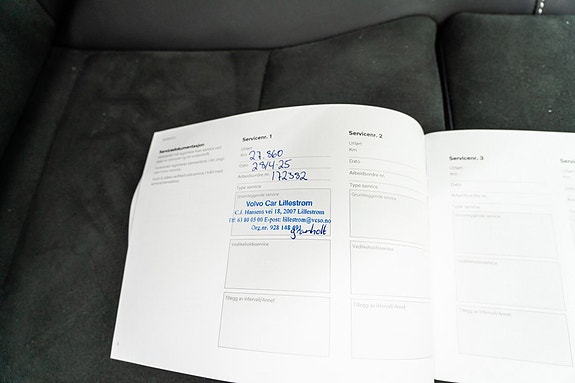 Servicedokumentasjon
Servicenr. 1
Utført
Km 27.860
Dato 28/4-25
Arbeidsordre nr. 172382
Type service
Grunnleggende service
Volvo Car Lillestrøm
C.J. Hansens vei 18, 2007 Lillestrøm
Tlf. 63 80 05 00 E-post: lillestrom@vcso.no
Org.nr. 928 148
Vedlikeholdsservice
Tillegg av intervall/Annet
Servicenr. 2
Utført
Km
Dato
Arbeidsordre nr.
Type service
Grunnleggende service
Vedlikeholdsservice
Tillegg av intervall/Annet
Servicenr. 3
Utført
Km
Dato
Arbeidsordre nr.
Type service
Grunnleggende service
Vedlikeholdsservice
Tillegg av intervall/Annet